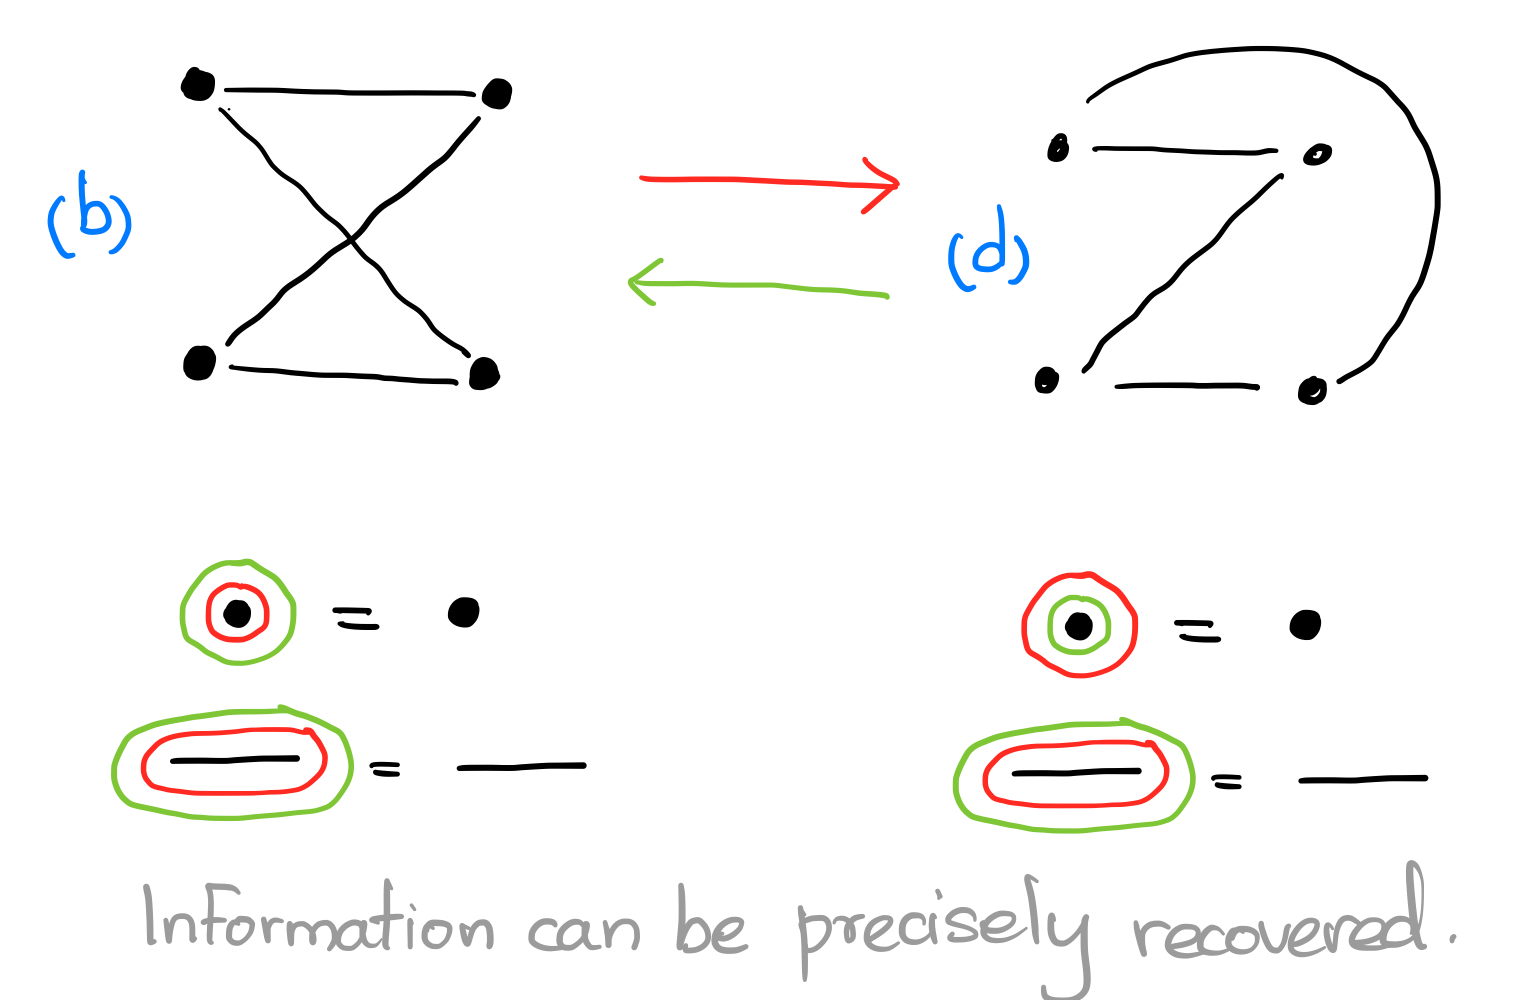 (b)
(d)
= 
=
=
=
Information can be precisely recovered.